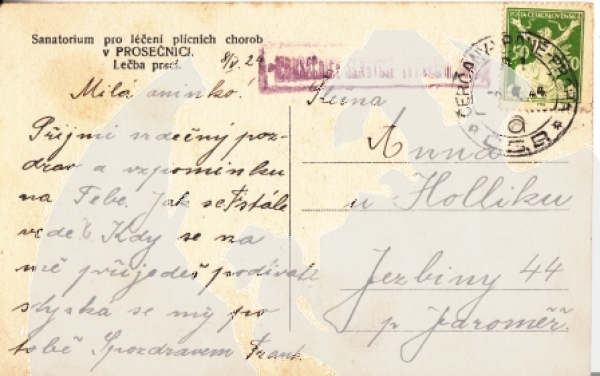 Sanatorium pro léčení plicních chorob
v PROSEČNICI.
Léčba prscí.
8/V. 24
Milá aninko!
Přijmi srdečný poz-
drav a vzpomínku
na Tebe. Jak se stále
vede? Kdy se na
mě přijedeš podívati
stýská se mý po
tobě S pozdravem Frant.
POŠTA ČESKOSLOVENSKÁ
50
Slečna
Anna
u Holliku
Jezbiny 44
p Jaroměř.